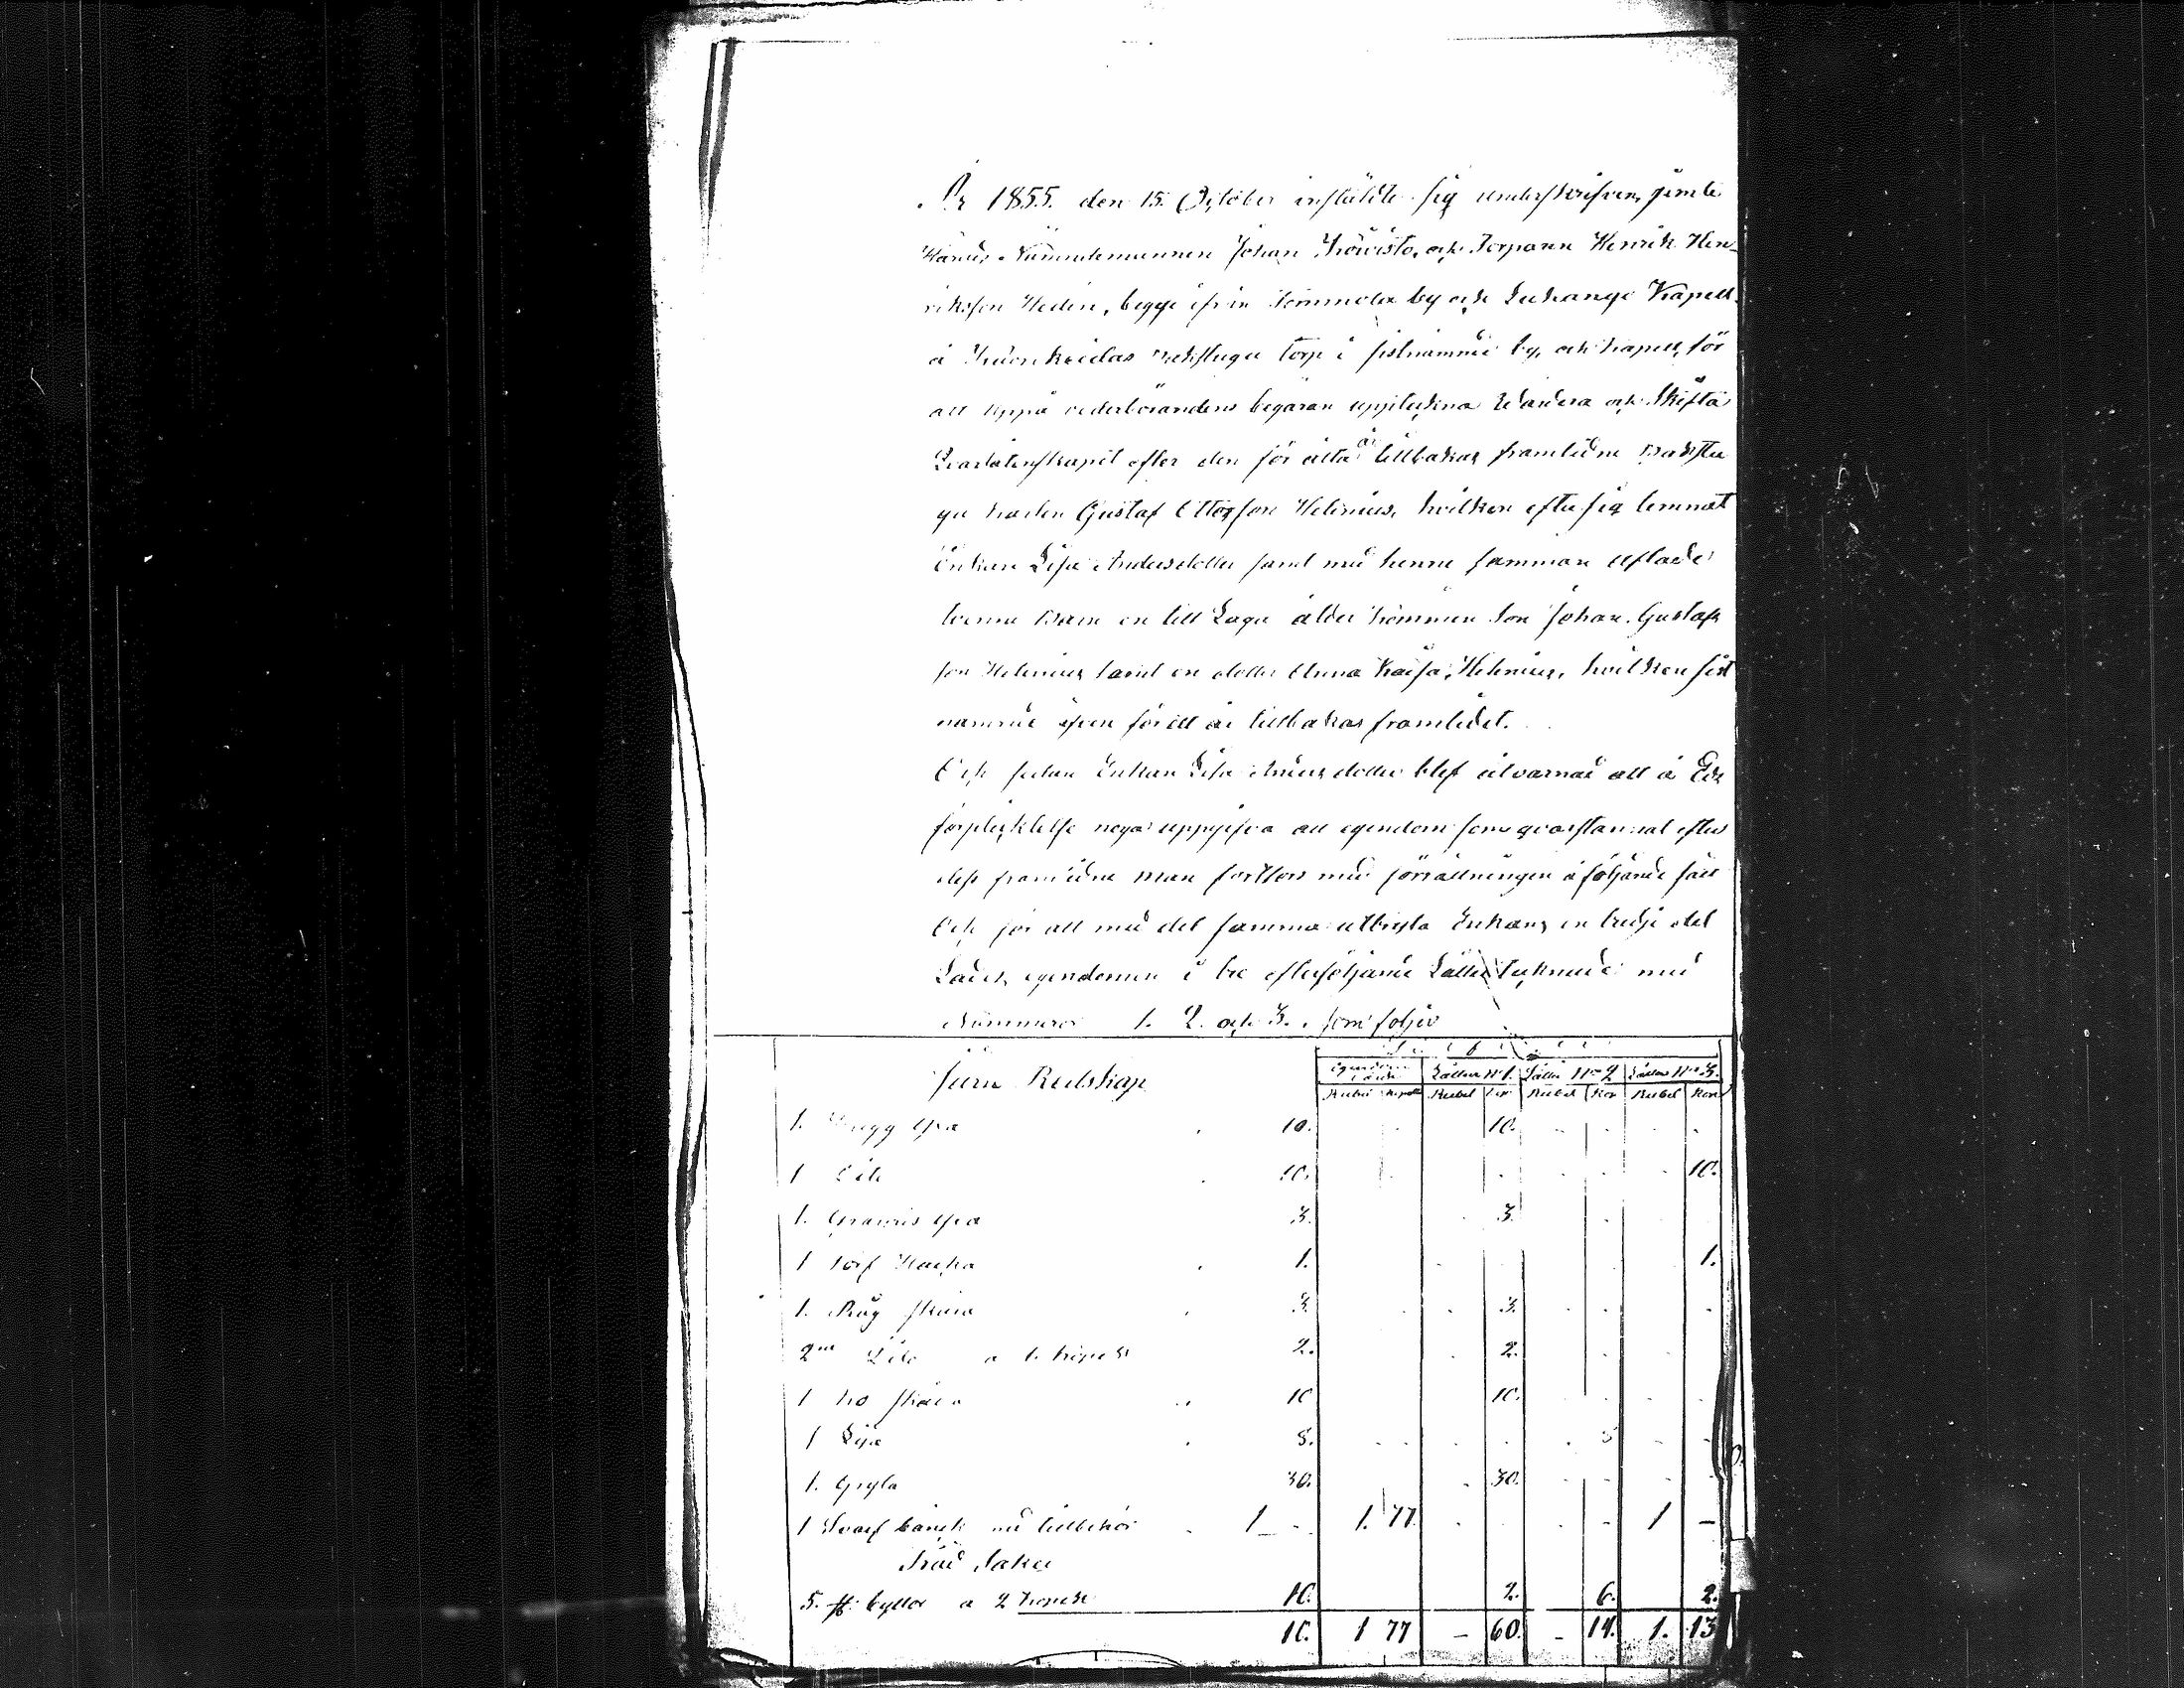 År 1855. den 15. October instälde sig underskrifven, jemte
Härads-Nämndemannen Johan Koivisto, och Torparen Henrik Hen-
riksson Hedin, begge ifrån Tommola by och Luhango Kapell,
å backstugu torp i sistnämnde by och kapell, för
att uppå vederbörandens begäran uppteckna Wärdera och Skifta
Qvarlåtenskapet efter den för åtta år tillbakas framledne Backstu
gu karlen Gustaf Ottosson Helenius, hvilken efter sig lemnat
Enkan Lisa Andersdotter samt med henne samman aflade
tvenne Barn en till Laga ålder kommen Son Johan Gustafs
son Helenius samt en dotter Anna Kaisa Helenius, hvilken sist
nämnde även för ett år tillbakas framledet.
Och sedan Enkan Lisa Andersdotter blef åtvarnad att å Eds
förplicktelse noga uppgifva all egendom som qvarstannat efter
dess framledne man fortfors med förrättningen å följande sätt
Och för att med det samma utbryta Enkans en tredje del
Lades egendomen i tre efterföljande Lätter tecknade med
Nummeror 1. 2. och 3. som följer
Jern Redskap
Lätten No 1. Lätten No 2 Lätten No 3.
Rubel Kopek Rubel Kop Rubel Kop Rubel Kop
1. Hugg Yxa 10. 10.
1 Dito 10. 10.
1. 3. 3.
1 Torf Hacka 1. 1.
1. Råg skära 3. 3.
2ne Dito a 1. kopek 2. 2.
1 ko skälla 10 10.
1 Lija 5. 5
1. Gryta 30. 30.
1 Svarf bänck med tillbehör 1 - 1. 77. 1 -
Träd Saker
5. st: byttor a 2 kopek 10. 2. 6. 2.
10. 1 77 - 60. - 11. 1. 13